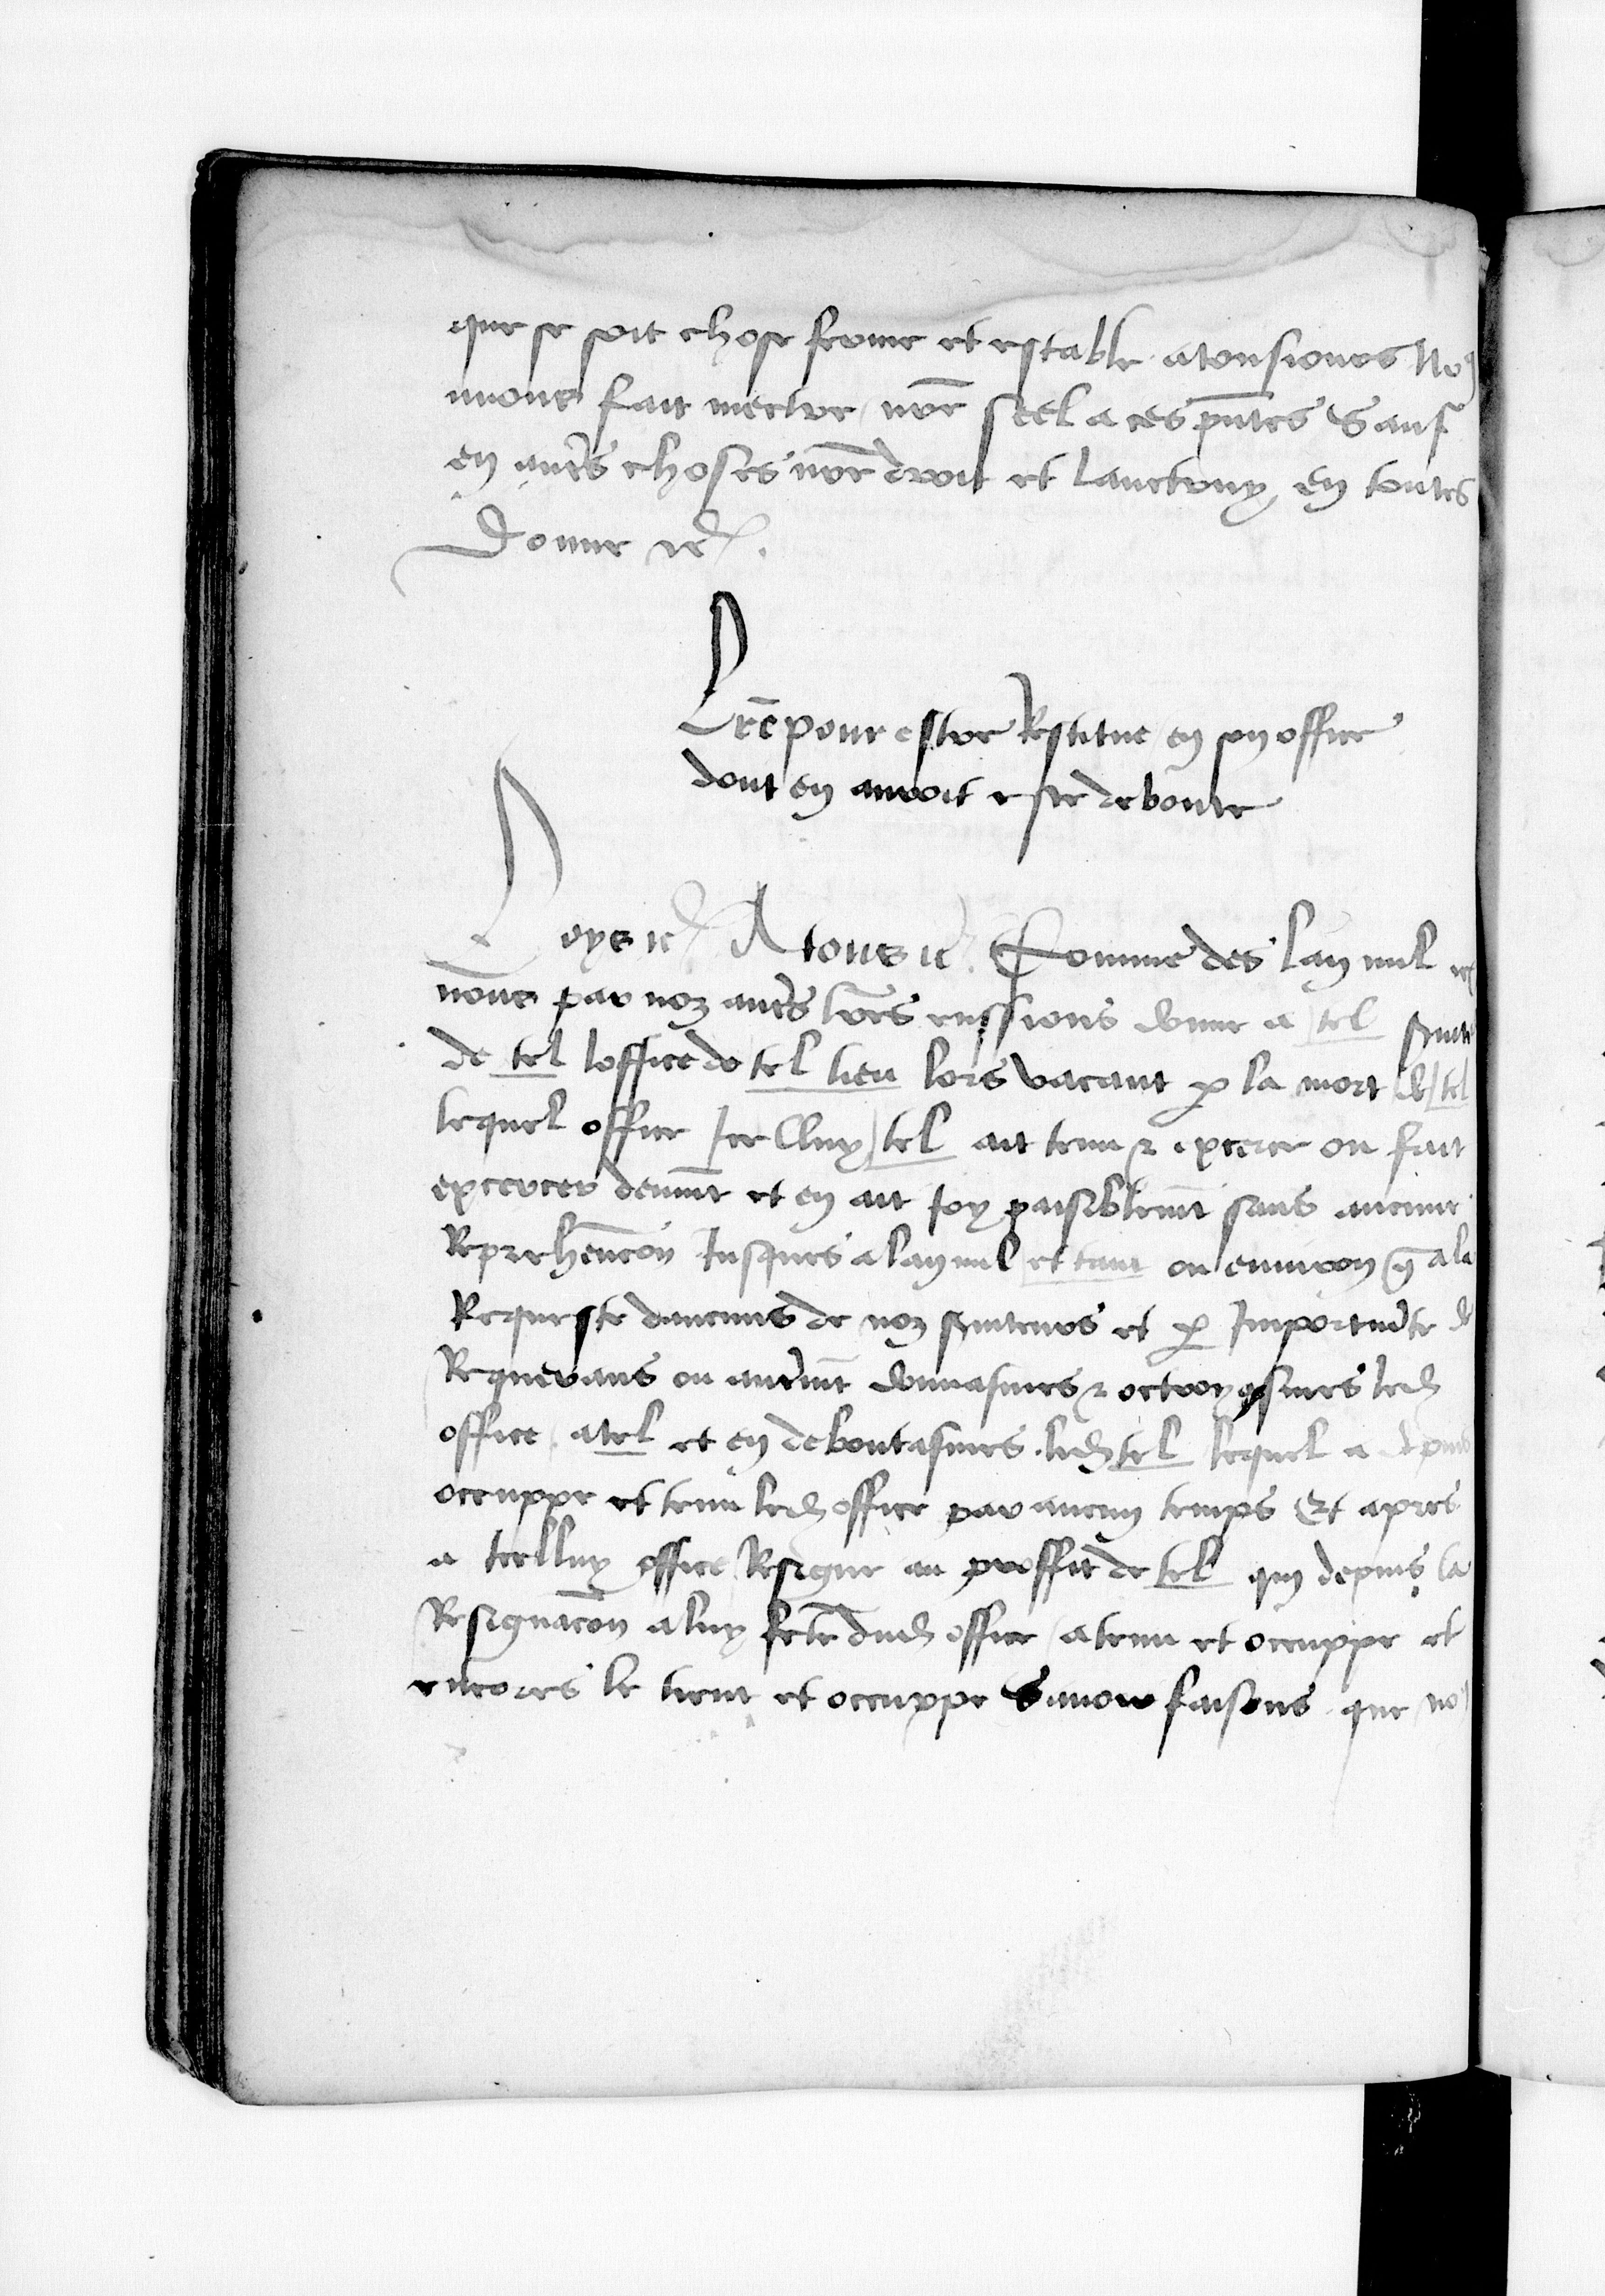 que se soit chose ferme et estable atousiours No9
auons fait mectre nre seel a ces pntes Sauf
en autrs choses nre droit et lautruy en toutes
Donne etc.
Lre pour estre Restitue en son office
dont en auroit este deboute
Loys etc A tous etc. Comme des lan mil etc
nous par noz autrs lres eussions donne a tel
de tel loffice de tel lieu lors vacant p la mort de tel
lequel office Icelluy tel ait tenu & excerce ou fait
excercer deuemt et en ait Joy paisiblemt sans aucune
Reprehencon Jusques a lan mil et tant ou enuiron q a la
Requeste daucuns de noz seruiteurs et p Importunite de
Requerans ou autremt donnasmes & octroyasmes led
office a tel et en deboutasmes led tel lequel a depuis
occuppe et tenu led office par aucun temps Et apres
a Icelluy office Resigne au proffit de tel qui depuis la
Resignacon a luy fcte dud office a tenu et occuppe et
encores le tient et occuppe Sauoir faisons que no9